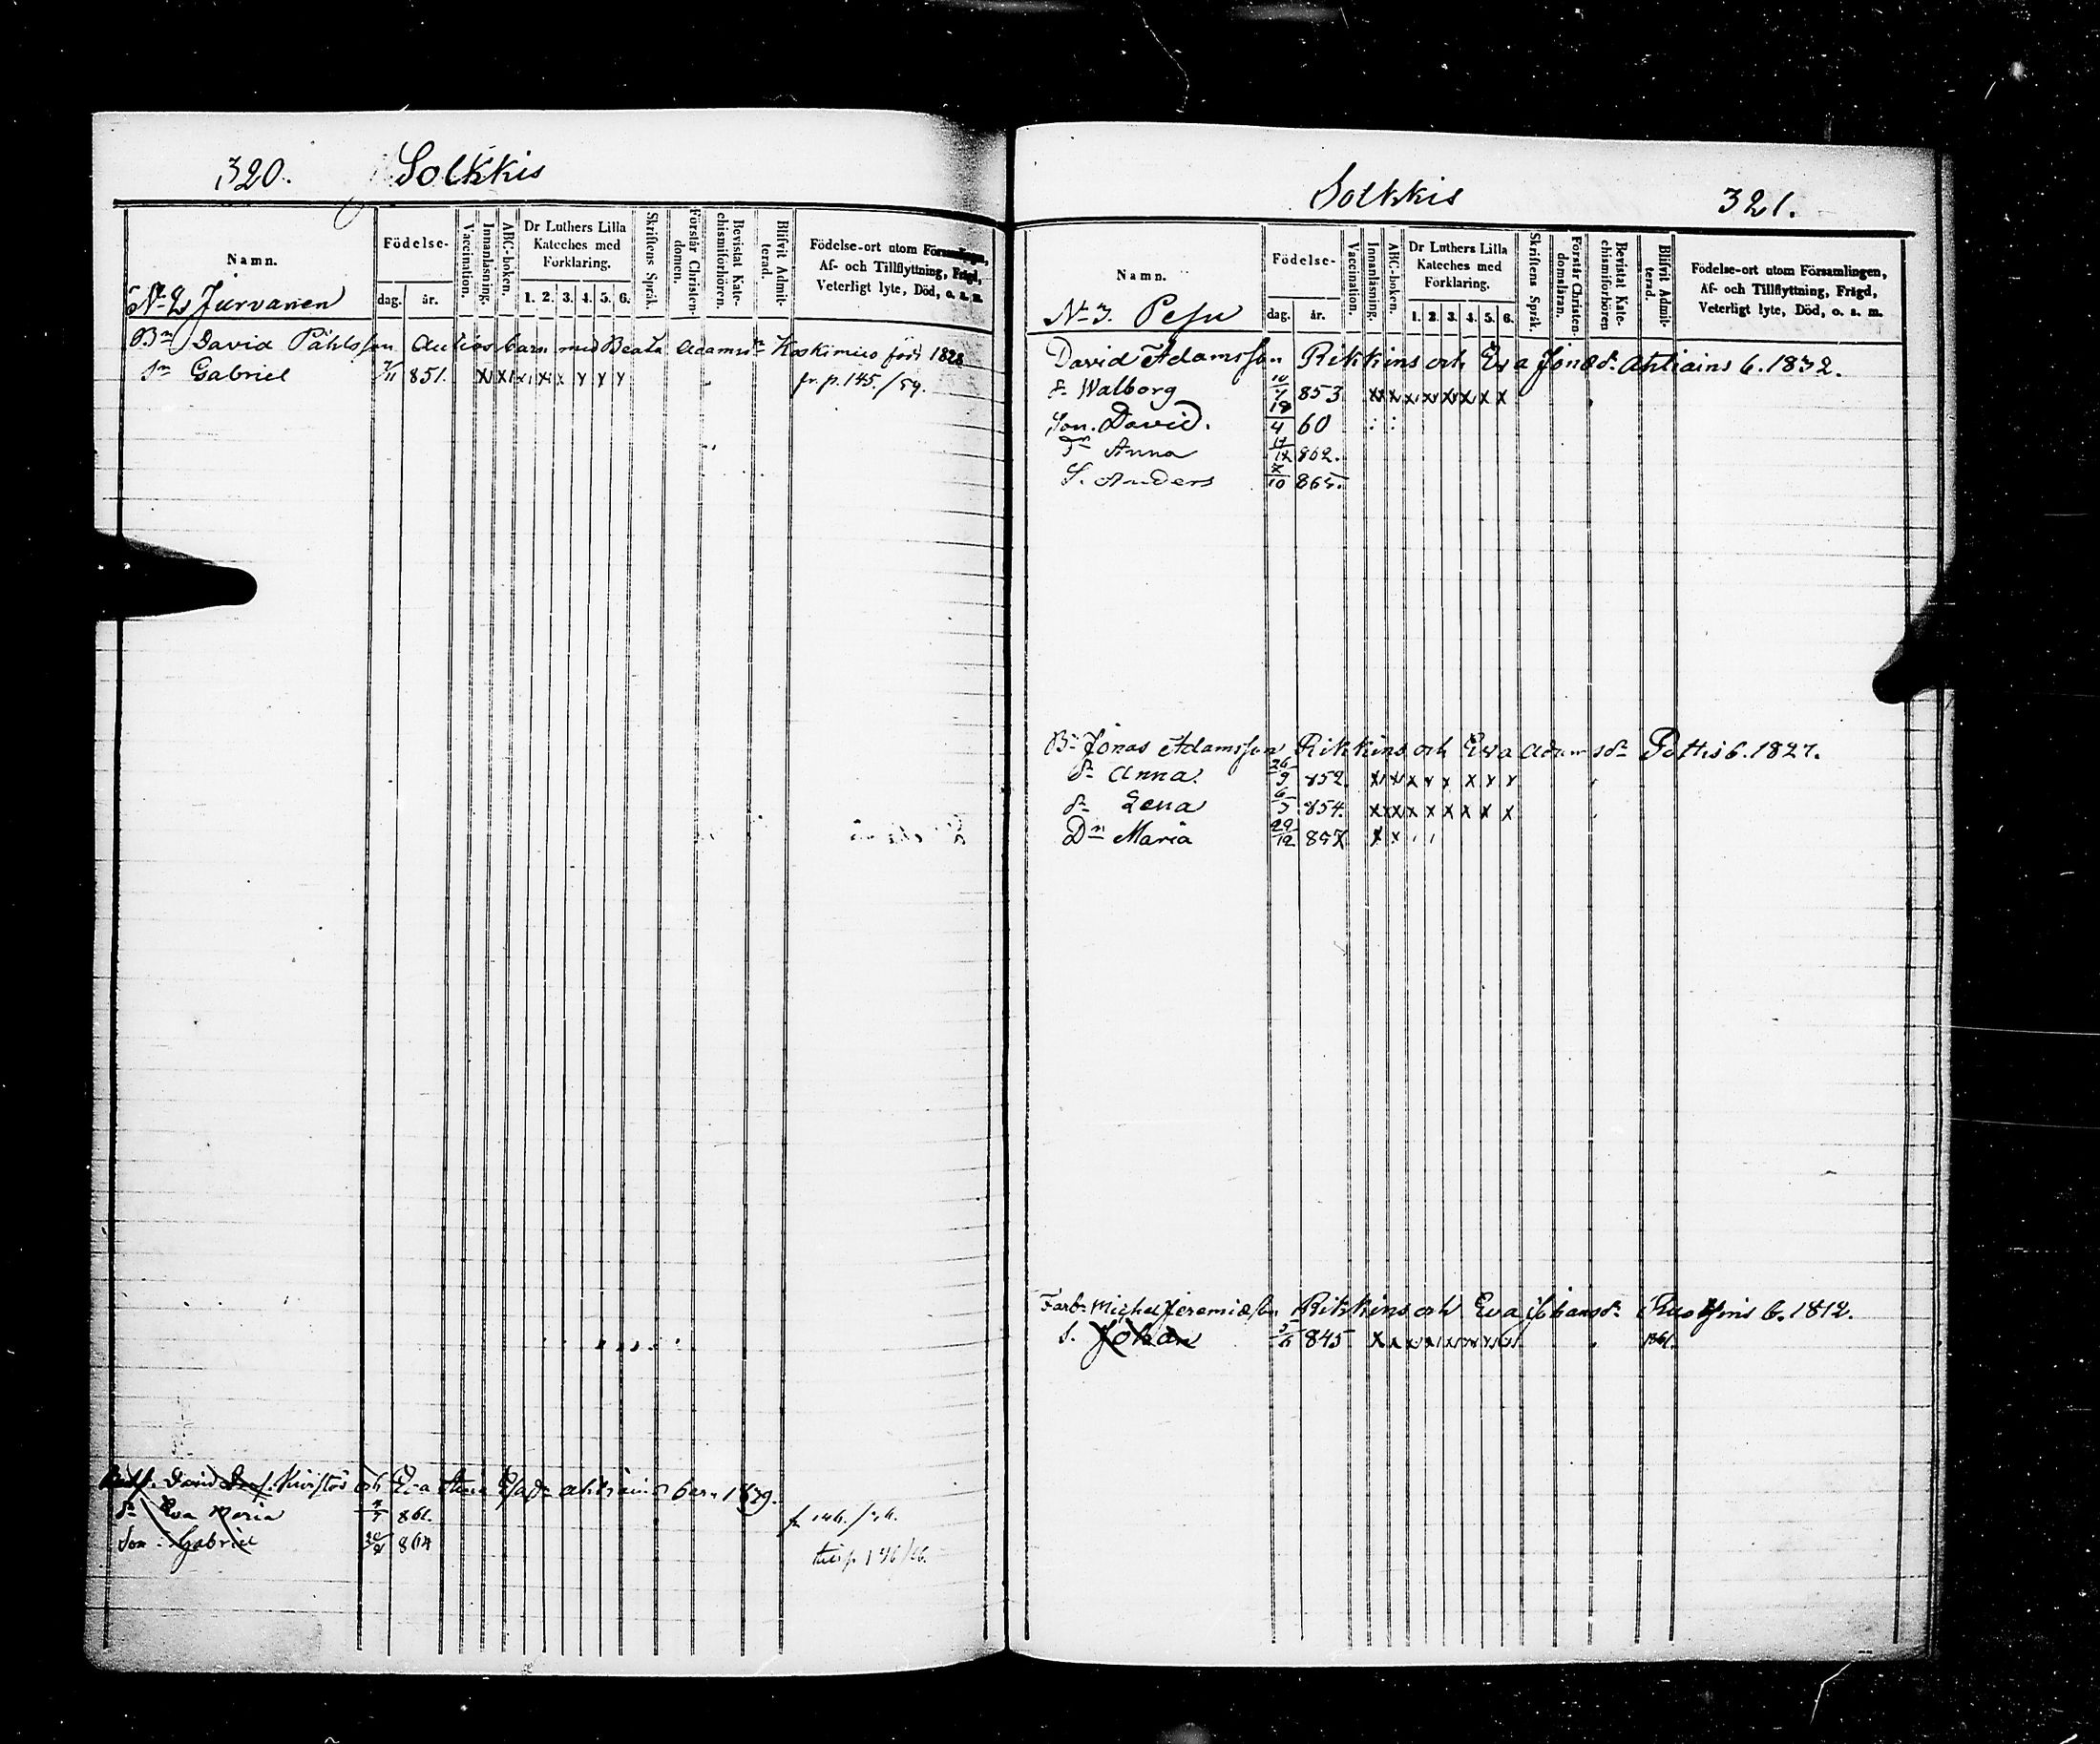 320. Solkkis
Namn.
Födelse-
dag. år.
Vaccination.
Innanläsning.
ABC-boken.
Dr Luthers Lilla
Kateches med
Förklaring.
1. 2. 3. 4. 5. 6.
Skriftens Språk.
Förstår Christen-
domen.
Bevistat Kate-
chismiförhören.
Blifvit Admit-
terad.
Födelse-ort utom Församlingen,
Af- och Tillflyttning, Frägd,
Veterligt lyte, Död, o. s. m.
No 2 Jurvanen
Bn David Påhlsson Autios barn med Beata Adamsdr Koskimies född 1828
Sn Gabriel 7/11 851. x x x x x x x x fr. p. 145./59.
David Kuistos och Eva barn 1839.
dr Eva Maria 861. fr 146./
Son Gabriel 864 146/66.
Solkkis 321.
Namn.
Födelse-
dag. år.
Vaccination.
Innanläsning.
ABC-boken.
Dr Luthers Lilla
Kateches med
Förklaring.
1. 2. 3. 4. 5. 6.
Skriftens Språk.
Förstår Christen-
domsläran.
Bevistat Kate-
chismiförhören
Blifvit Admit-
terad.
Födelse-ort utom Församlingen,
Af- och Tillflyttning, Frägd,
Veterligt lyte, Död, o. s. m.
No 3. Pesu
David Adamsson Rikkins och Eva Jonasdr Ahtiains b. 1832.
dr Walborg 10/7 853 x x x x x x x x
Son. David. 18/4 60
Dn Anna 17/12 862.
S. Anders 7/10 865.
Br Jonas Adamsson Rikkins och Eva Adamsdr Pottis b. 1827.
dr Anna 26/9 852. x x x x x x x x
dr Lena 6/3 854. x x x x x x x x
Dn Maria 29/12 857 x x
Farb. Michel Jeremiæson Rikkins och Eva Johansdr b. 1812.
S. Johan 845 x x x x x x x x 1861.